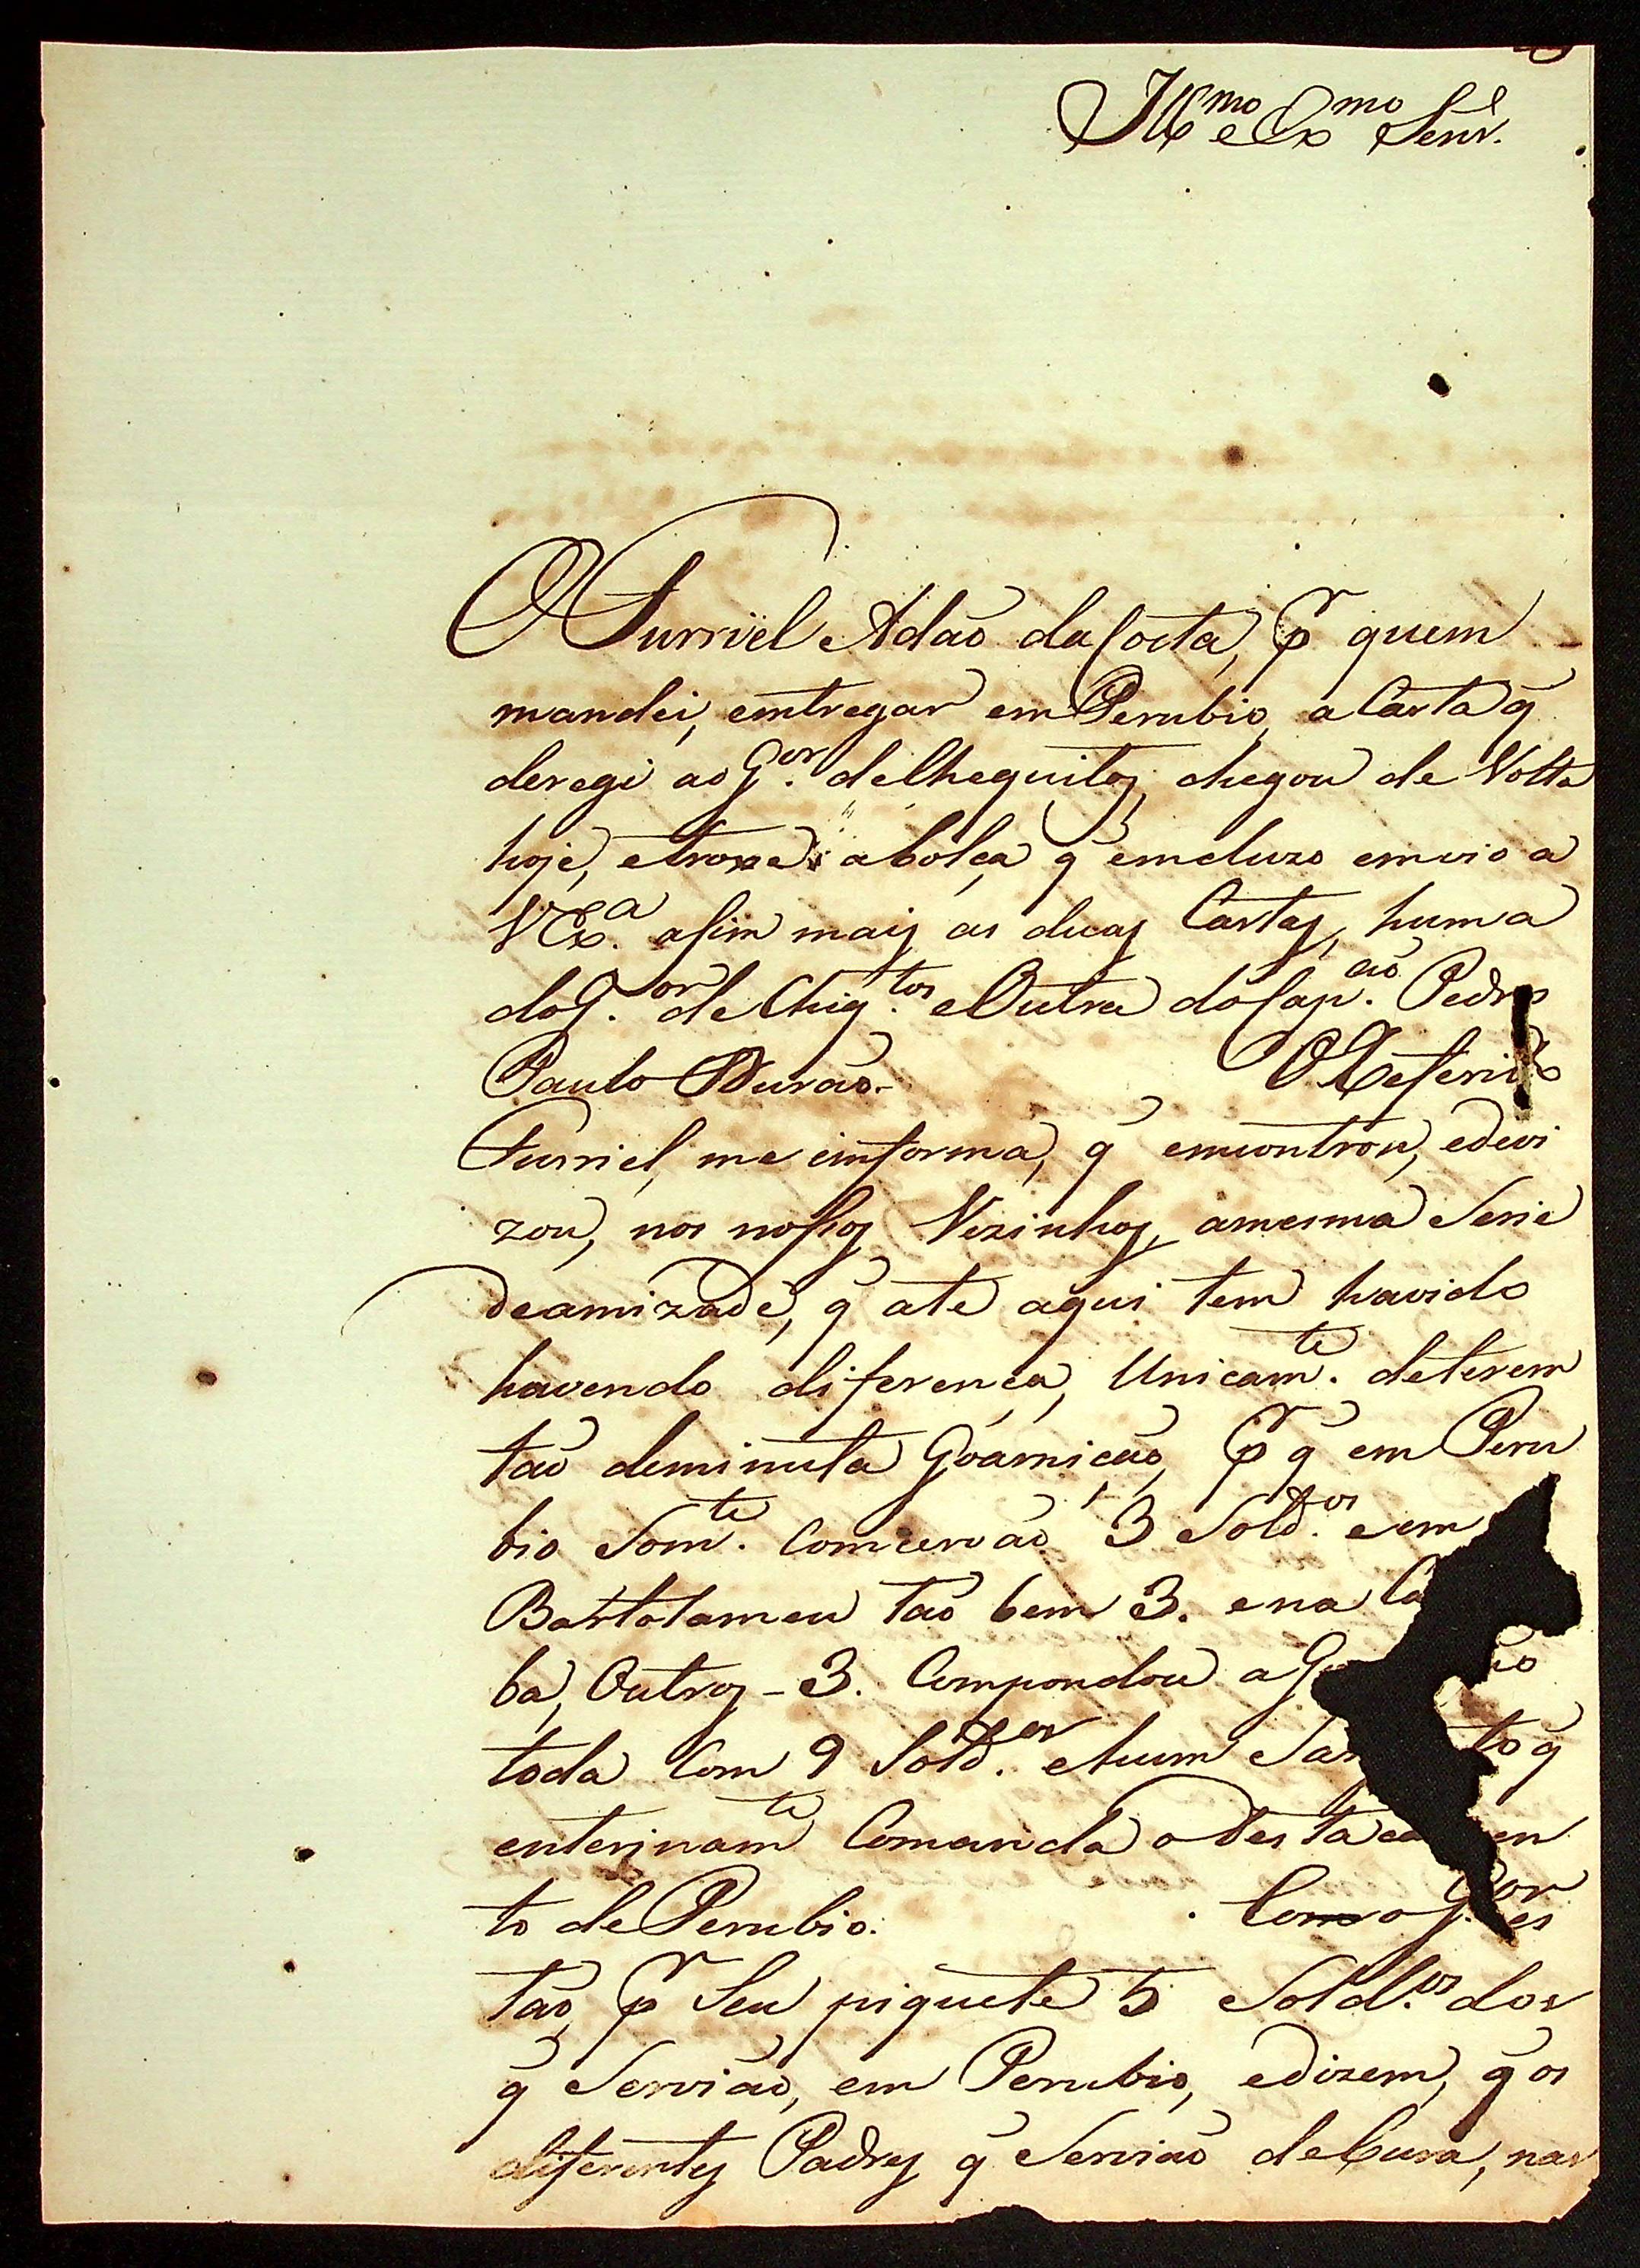 Ill.mo e Ex.mo Senr.
O Furriel Adão da Costa, pr quem
mandei, emtregar em Perubio, a Carta q̃
deregi ao G.or de Chequitos, chegou de Volta
hoje, e troxe a bolça q̃ emcluzo emvio a
V Ex.a asim mais as duas Cartas, huma
do G.or de Chiq.tos e Outra do Cap.ão Pedro
Paulo Durão. O Referido
Furriel, me emforma, q̃ emcontrou, e devi
zou, nos nossos Vezinhos, a mesma Serie
de amizade, q̃ até aqui tem havido
havendo diferença, Unicam.te de terem
tão deminuta Goarnição, pr q̃ em Peru
bio Som.te Comcervão 3 Sold.os e em
Bartolameu tão bem 3. e na Ca
ba, Outros - 3. Compondou a G ão
toda Com 9 Sold.os e hum Sar to q̃
enterinam.te Comanda o Destaca en
to de Perubio. Com o G.or es
tão, pr Seu piquete 5 Sold.os dos
q̃ Servião, em Perubio, e dizem, q̃ os
diferentes Padres q̃ Servião de Cura, nas